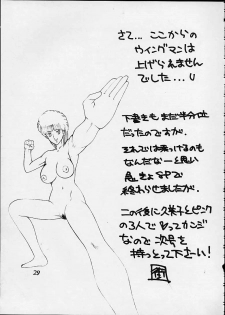 さて... ここからの
ウイングマンは
上げられませんでした...
下書きも まだ半分位
だったのですが、
それでは 乗っけるのも
なんだなーと思い
急きょ
終わらせましたが、
この後に久美子とピンク
の3人で とってカンジ
なので 次号を
持っとって下さーい!
29